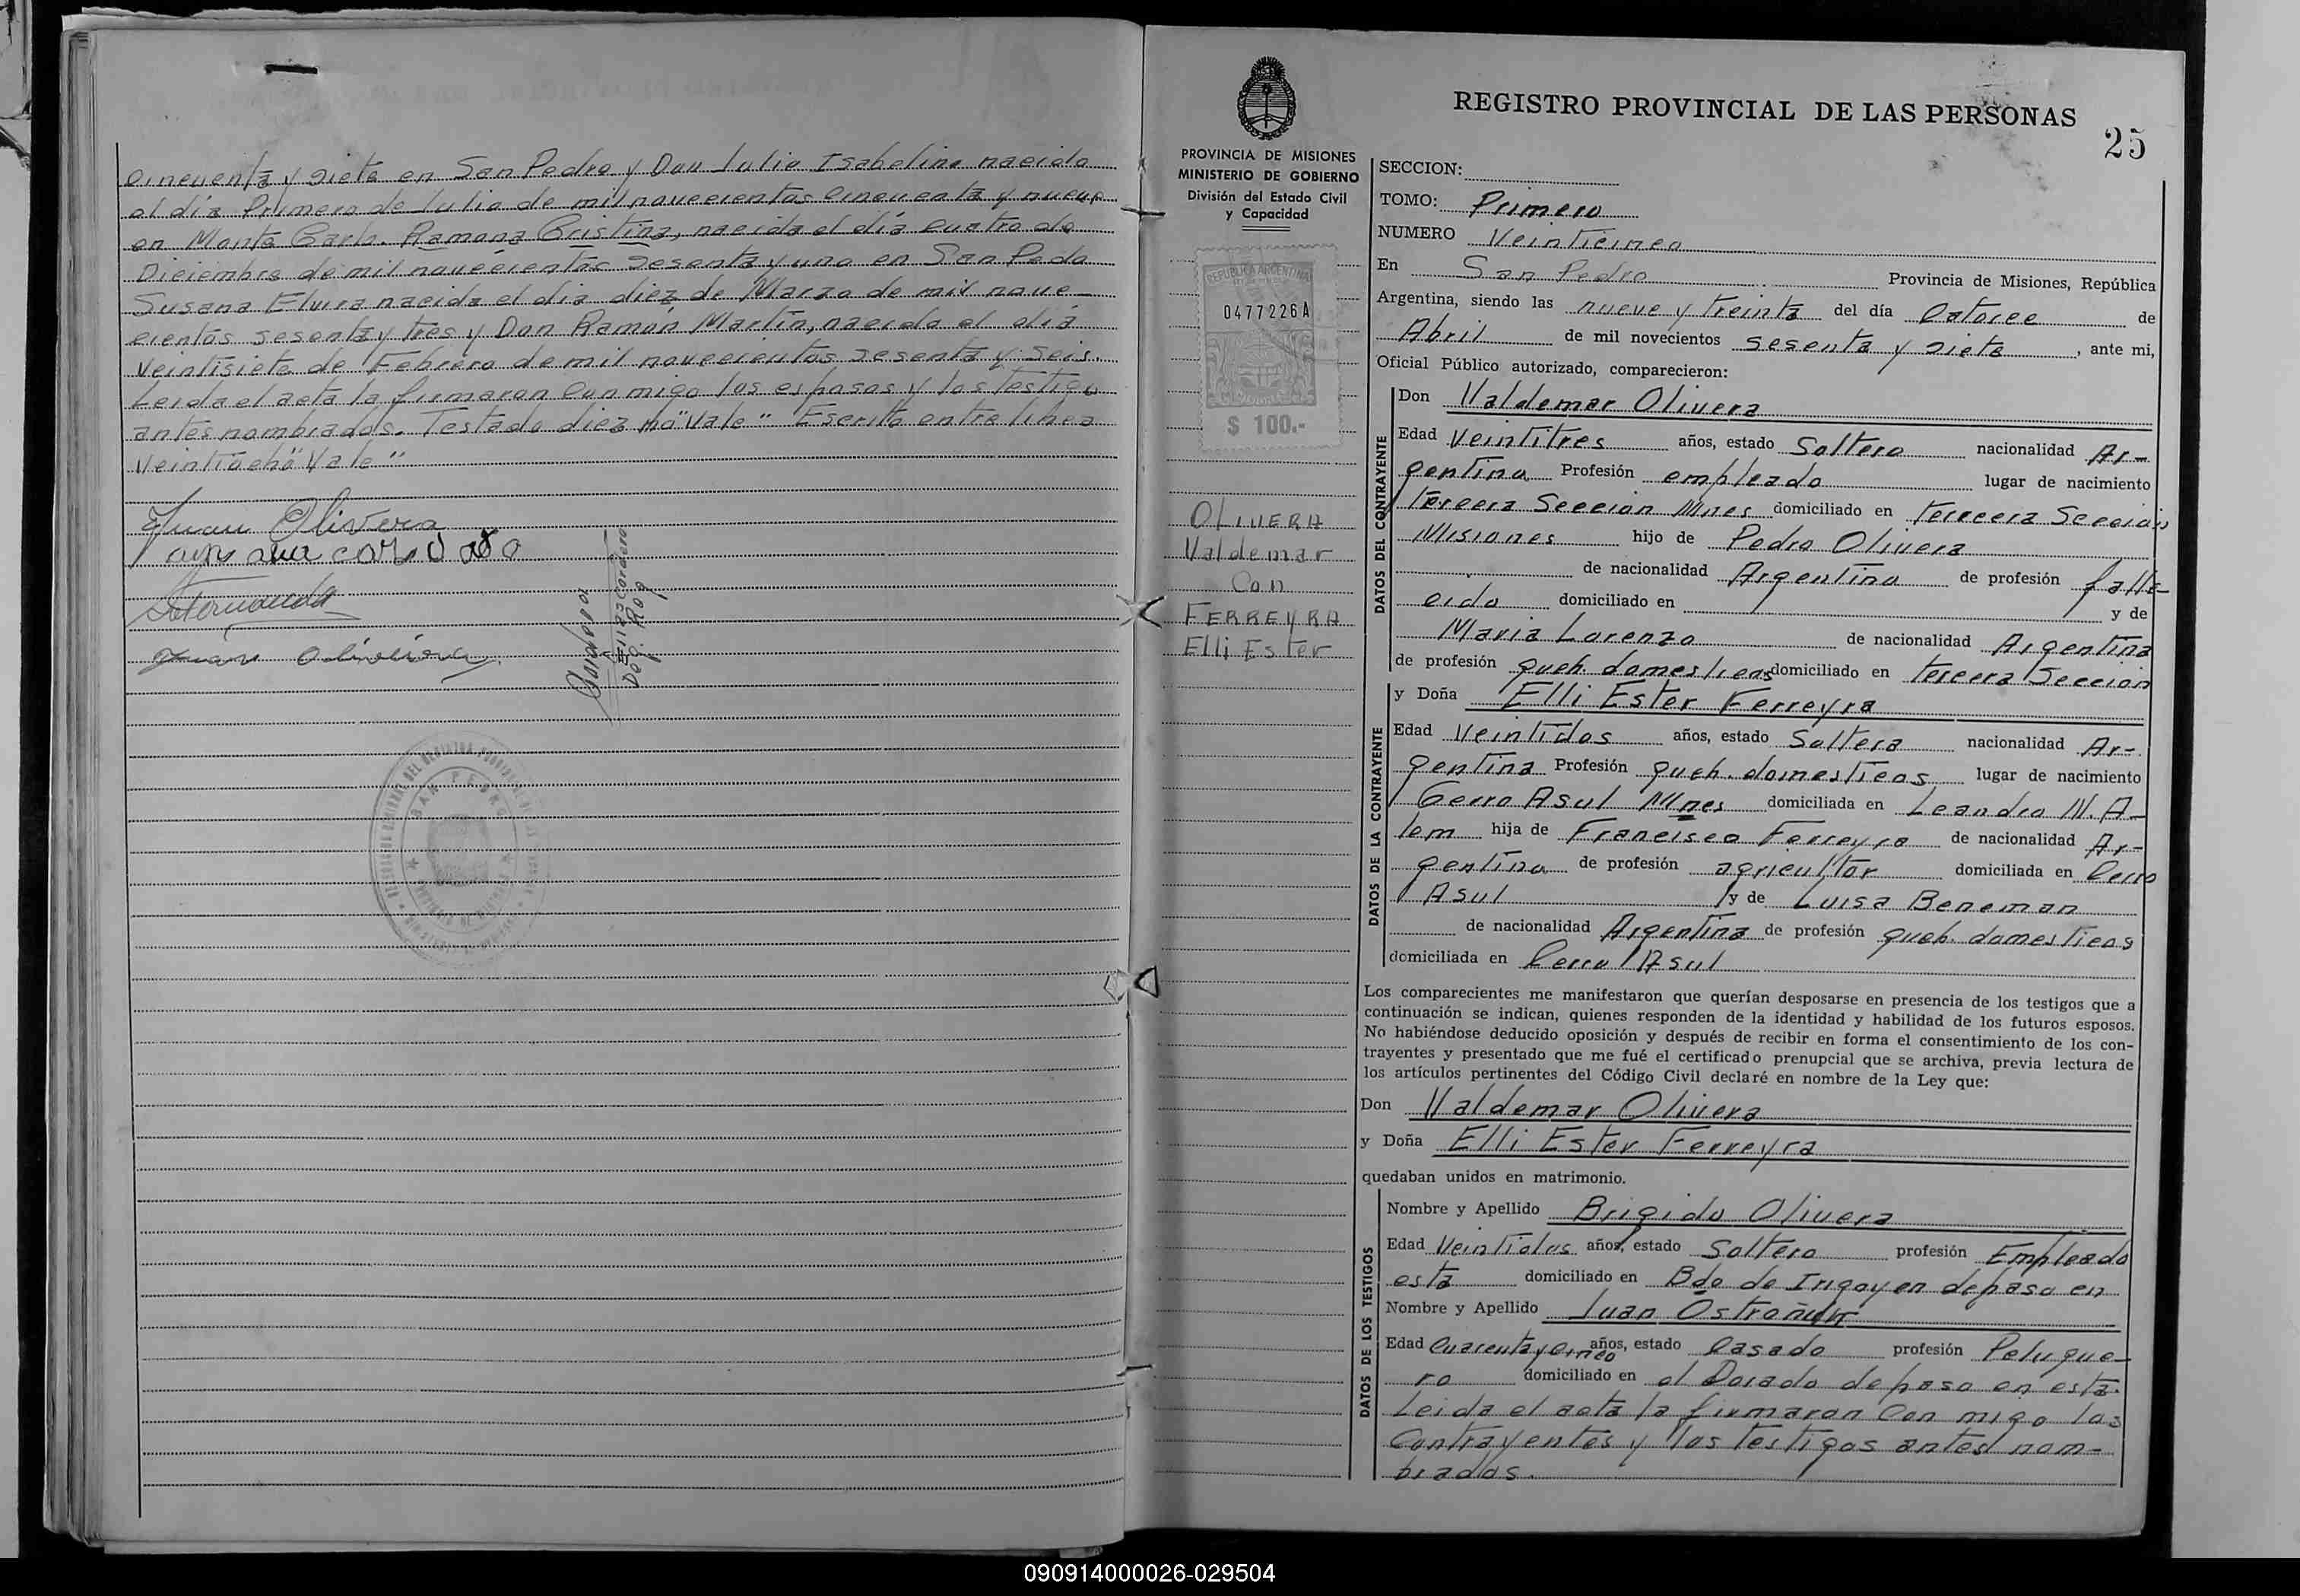 cincuenta y siete en San Pedro y Don Julio Isabelino nacido
el día Primero de Julio de mil novecientos cincuenta y nueve
en Monte Carlo. Ramona Cristina, nacida el día cuatro de
Diciembre de mil novecientos sesenta y uno en San Pedo
Susana Elvira nacida el dia diez de Marzo de mil nove-
cientos sesenta y tres y Don Ramón Martín, nacido el dia
veintisiete de Febrero de mil novecientos sesenta y seis.
Leida el acta la firmaron conmigo los esposos y los testigo
antes nombrados. Testado diez "Vale" Escrito entre linea
veintiocho "Vale"
Juan Olivera
Juan Olivera
REGISTRO PROVINCIAL DE LAS PERSONAS
25
PROVINCIA DE MISIONES
MINISTERIO DE GOBIERNO
División del Estado Civil
y Capacidad
REPUBLICA ARGENTINA
0477226A
$ 100.-
OLIVERA
Valdemar
Con
FERREYRA
Elli Ester
SECCION:
TOMO: Primero
NUMERO Veinticinco
En San Pedro Provincia de Misiones, República
Argentina, siendo las nueve y treinta del día Catorce de
Abril de mil novecientos sesenta y siete, ante mi,
Oficial Público autorizado, comparecieron:
DATOS DEL CONTRAYENTE
Don Valdemar Olivera
Edad Veintitres años, estado Soltero nacionalidad Ar-
gentina Profesión empleado lugar de nacimiento
Tercera Seccion Mnes domiciliado en Tercera Seccion
Misiones hijo de Pedro Olivera
de nacionalidad Argentina de profesión falle-
cido domiciliado en y de
Maria Lorenzo de nacionalidad Argentina
de profesión queh. domesticos domiciliado en Tercera Seccion
DATOS DE LA CONTRAYENTE
y Doña Elli Ester Ferreyra
Edad Veintidos años, estado Soltera nacionalidad Ar-
gentina Profesión queh. domesticos lugar de nacimiento
Cerro Asul Mnes domiciliada en Leandro N. A-
lem hija de Francisco Ferreyra de nacionalidad Ar-
gentina de profesión agricultor domiciliada en Cerro
Asul y de Luisa Beneman
de nacionalidad Argentina de profesión queh. domesticos
domiciliada en Cerro Asul
Los comparecientes me manifestaron que querían desposarse en presencia de los testigos que a
continuación se indican, quienes responden de la identidad y habilidad de los futuros esposos.
No habiéndose deducido oposición y después de recibir en forma el consentimiento de los con-
trayentes y presentado que me fué el certificado prenupcial que se archiva, previa lectura de
los artículos pertinentes del Código Civil declaré en nombre de la Ley que:
Don Valdemar Olivera
y Doña Elli Ester Ferreyra
quedaban unidos en matrimonio.
DATOS DE LOS TESTIGOS
Nombre y Apellido Brigido Olivera
Edad Veintidos años, estado Soltero profesión Empleado
esta domiciliado en Bdo de Irigoyen depaso en
Nombre y Apellido Juan
Edad Cuarenta y cinco años, estado Casado profesión Peluque-
ro domiciliado en el Dorado depaso en esta.
Leida el acta la firmaron con migo los
Contrayentes y los testigos antes nom-
brados.
090914000026-029504